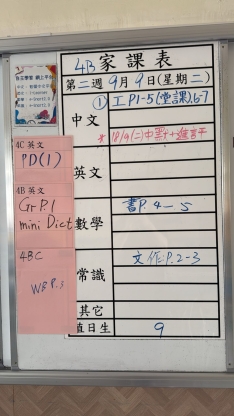 4B家課表
第二週9月9日(星期二)
中文
① 工P1-5(堂課),6-7
* 18/9(二)中默十
4C 英文
PD(1)
英文
4B 英文
Gr P.1
mini Dict
數學
書P.4-5
4BC
WB P.3
常識
文作:P.2-3
其它
值日生
9